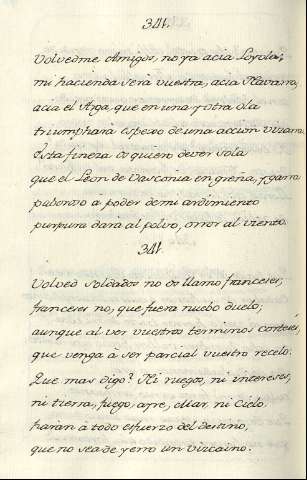 341.
Volvedme Amigos, no ya acia Loyola,
mi hacienda será vuestra, acia Navarra,
acia el Arga, que en una y otra ola
triumphará espero de una accion vizarra.
Esta fineza os quiero dever sola
que el Leon de Vasconia en greña, y garra
pavoroso à poder de mi ardimiento
purpura dará al polvo, orror al viento.
341.
Volved soldados no os llamo franceses,
franceses no, que fuera nuebo duelo;
aunque al ver vuestros terminos corteses,
que venga à ser parcial vuestro recelo.
Que mas digo? Ni ruegos, ni intereses,
ni tierra, fuego, ayre, Mar, ni Cielo
haran à todo esfuerzo del destino,
que no sea de yerro un vizcaino.